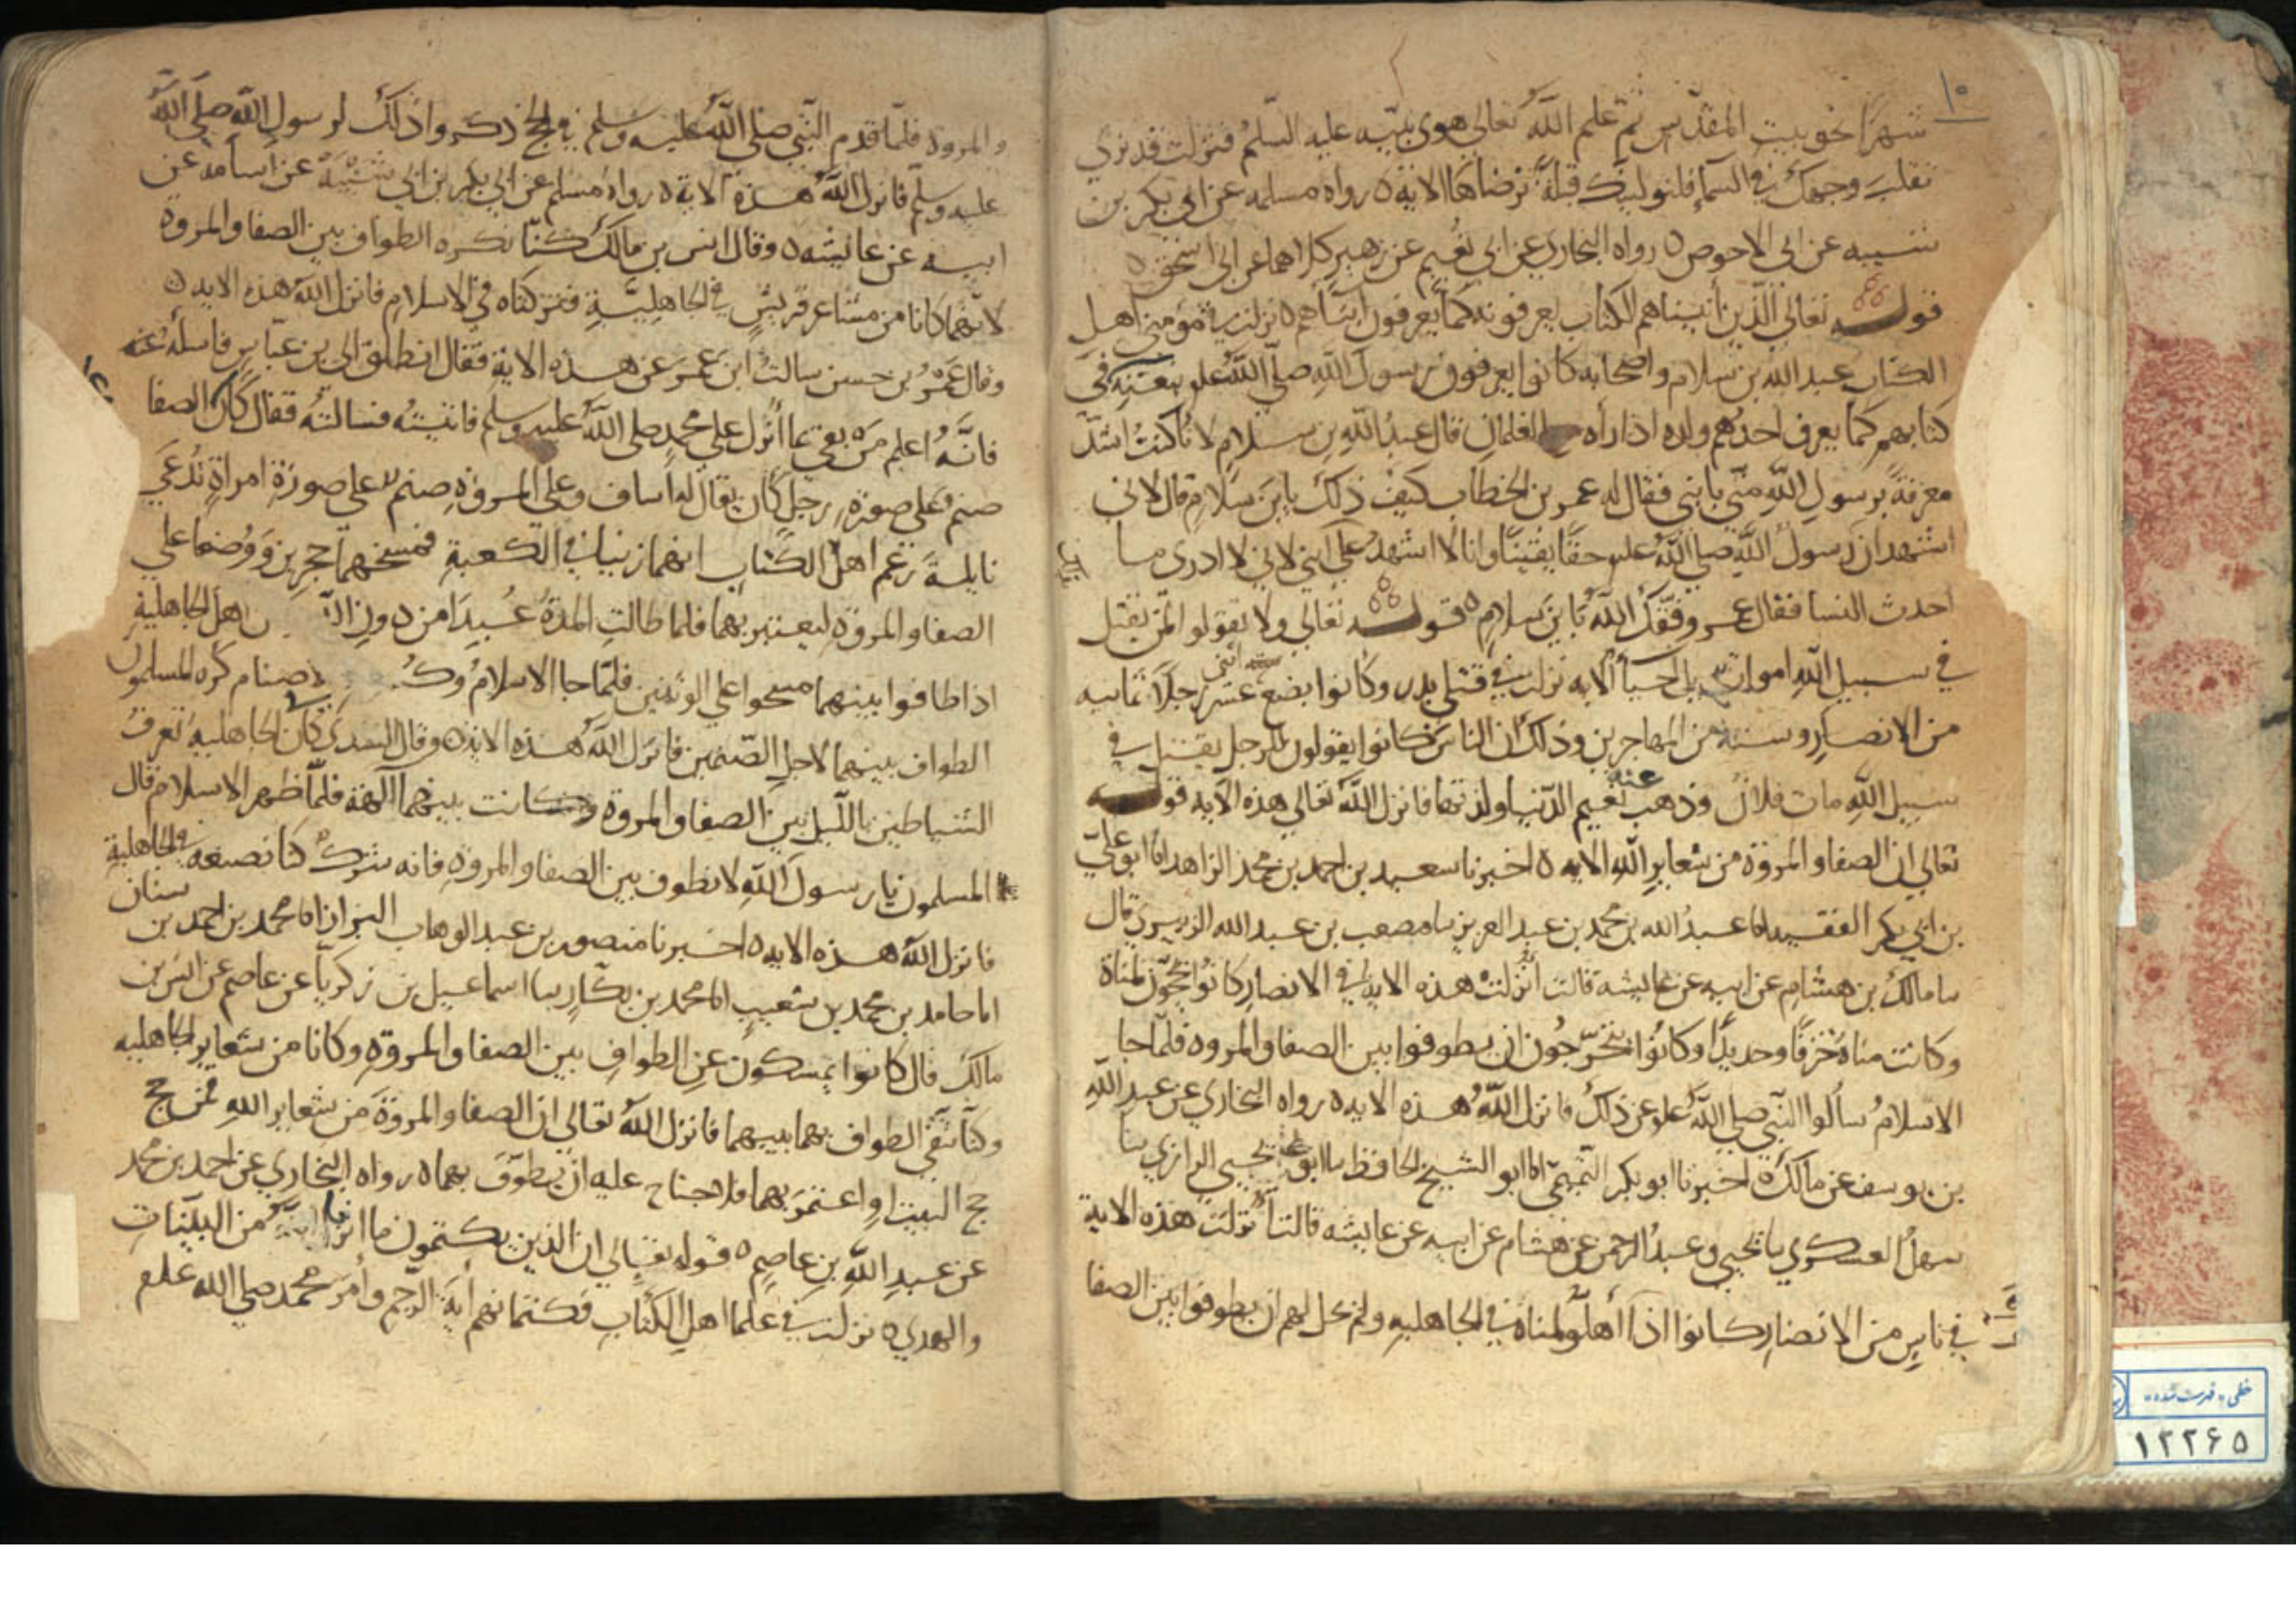 ١٠
شهرا نحو بيت المقدس ثم علم الله تعالى هوى نبيه عليه السلم فنزلت قد نرى
تقلب وجهك في السماء فلنولينك قبلة ترضاها الاية ٥ رواه مسلم عن ابي بكر بن
شيبه عن ابي الاحوص ٥ رواه البخاري عن ابي نعيم عن زهير كلاهما عن ابي اسحق ٥
قوله تعالى الذين أتيناهم الكتاب يعرفونه كما يعرفون ابناهم ٥ نزلت في مؤمني اهل
الكتاب عبد الله بن سلام واصحابه كانوا يعرفون رسول الله صلى الله علم بنعته في
كتابهم كما يعرف احدهم ولده اذا رأه مع الغلمان قال عبد الله بن سلام لأنا كنت اشد
معرفة برسول الله مني بابني فقال له عمر بن الخطاب كيف ذلك يابن سلام قال لاني
اشهد ان رسول الله صلى الله علم حقا يقينا وانا لا اشهد على ابني لاني لا ادري ما
احدث النسا فقال عمر وفقك الله يا بن سلام ٥ قوله تعالى ولا تقولو المن يقتل
في سبيل الله اموات بل احيا الايه نزلت في قتلى بدر وكانوا بضع عشر رجلا ثمانيه
من الانصار وستة من المهاجرين وذلك ان الناس كانوا يقولون للرجل يقتل في
سبيل الله مات فلان وذهب عنه نعيم الدنيا ولذتها فانزل الله تعالى هذه الآيه قوله
تعالى ان الصفا والمروة من شعاير الله الايه ٥ اخبرنا سعيد بن احمد بن محمد الزاهد انا ابو علي
بن ابي بكر الفقيه انا عبد الله بن محمد بن عبد العزيز نا مصعب بن عبد الله الزبيري قال
نا مالك بن هشام عن ابيه عن عايشه قالت أنزلت هذه الايه في الانصار كانوا يحجون لمناة
وكانت مناة حذو قديد وكانوا يتحرجون ان يطوفوا بين الصفا والمروه فلما جا
الاسلام سألوا النبي صلى الله علم عن ذلك فانزل الله هذه الايه ٥ رواه البخاري عن عبد الله
بن يوسف عن مالك ٥ اخبرنا ابو بكر التميمي انا ابو الشيخ الحافظ نا ابو يحيى الرازي نا
سهل العسكري نا يحيى وعبد الرحمن عن هشام عن ابيه عن عايشه قالت أنزلت هذه الاية
في ناس من الانصار كانوا اذا أهلوا لمناة في الجاهليه ولم يحل لهم ان يطوفوا بين الصفا
والمروة فلما قدم النبي صلى الله عليه وسلم في الحج ذكروا ذلك لرسول الله صلى الله
عليه وسلم فانزل الله هذه الاية ٥ رواه مسلم عن ابي بكر بن ابي شيبة عن اسامة عن
ابيه عن عايشه ٥ وقال انس بن مالك كنا نكره الطواف بين الصفا والمروة
لانهما كانا من مشاعر قريش في الجاهلية فتركناه في الاسلام فانزل الله هذه الايه ٥
وقال عمرو بن حسن سالت ابن عمر عن هذه الاية فقال انطلق الى بن عباس فاسأله عنه
فانه اعلم من بقي بما أنزل على محمد صلى الله عليه وسلم فاتيته فسالته فقال كان الصفا
صنم على صورة رجل كان يقال له أساف وعلى المروة صنم على صورة امراة تدعى
نايلة زعم اهل الكتاب انهما زنيا في الكعبة فمسخهما حجرين ووضعا على
الصفا والمروة ليعتبر بهما فلما طالت المدة عبدا من دون الله اهل الجاهلية
اذا طافوا بينهما مسحوا على الوثنين فلما جا الاسلام الاصنام كره المسلمون
الطواف بينهما لاجل الصنمين فانزل الله هذه الايه ٥ وقال السدي كان في الجاهلية تعرف
الشياطين بالليل بين الصفا والمروة وكانت بينهما آلهة فلما ظهر الاسلام قال
المسلمون يا رسول الله لا نطوف بين الصفا والمروة فانه شرك كنا نصنعه في الجاهلية
فانزل الله هذه الايه ٥ اخبرنا منصور بن عبد الوهاب البزاز انا محمد بن احمد بن سنان
انا حامد بن محمد بن شعيب انا محمد بن بكار نا اسماعيل بن زكريا عن عاصم عن انس بن
مالك قال كانوا يمسكون عن الطواف بين الصفا والمروة وكانا من شعاير الجاهليه
وكنا نتقي الطواف بهما بينهما فانزل الله تعالى ان الصفا والمروة من شعاير الله فمن حج
حج البيت او اعتمر بهما فلا جناح عليه ان يطوف بهما ٥ رواه البخاري عن احمد بن محمد
عن عبد الله بن عاصم ٥ قوله تعالى ان الذين يكتمون ما انزلنا من البينات
والهدى ٥ نزلت في علما اهل الكتاب وكتمانهم أية الرجم وأمر محمد صلى الله علم
خطى «فهرست شده»
١٢٢٦٥